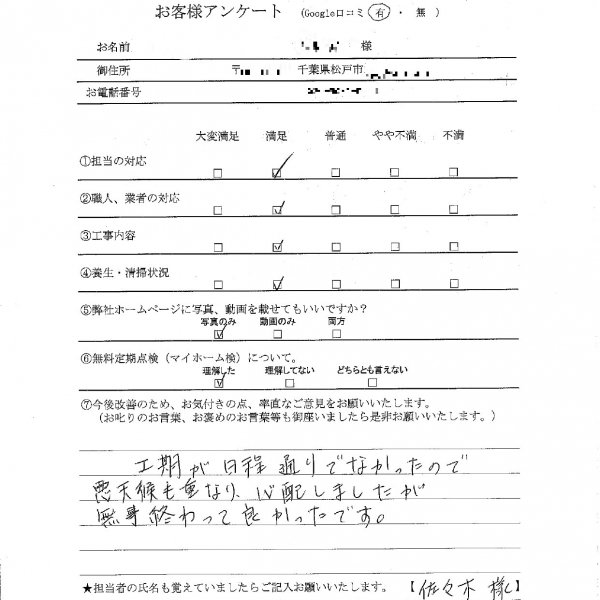 お客様アンケート (Google口コミ 有 ・ 無 )
お名前 様
御住所 〒 千葉県松戸市
お電話番号
大変満足 満足 普通 やや不満 不満
①担当の対応 □ ☑ □ □ □
②職人、業者の対応 □ ☑ □ □ □
③工事内容 □ ☑ □ □ □
④養生・清掃状況 □ ☑ □ □ □
⑤弊社ホームページに写真、動画を載せてもいいですか?
写真のみ 動画のみ 両方
☑ □ □
⑥無料定期点検（マイホーム検）について。
理解した 理解してない どちらとも言えない
☑ □ □
⑦今後改善のため、お気付きの点、率直なご意見をお願いいたします。
（お叱りのお言葉、お褒めのお言葉等も御座いましたら是非お願いいたします。）
工期が日程通りでなかったので
悪天候も重なり、心配しましたが
無事終わって良かったです。
★担当者の氏名も覚えていましたらご記入お願いいたします。 【佐々木 様】